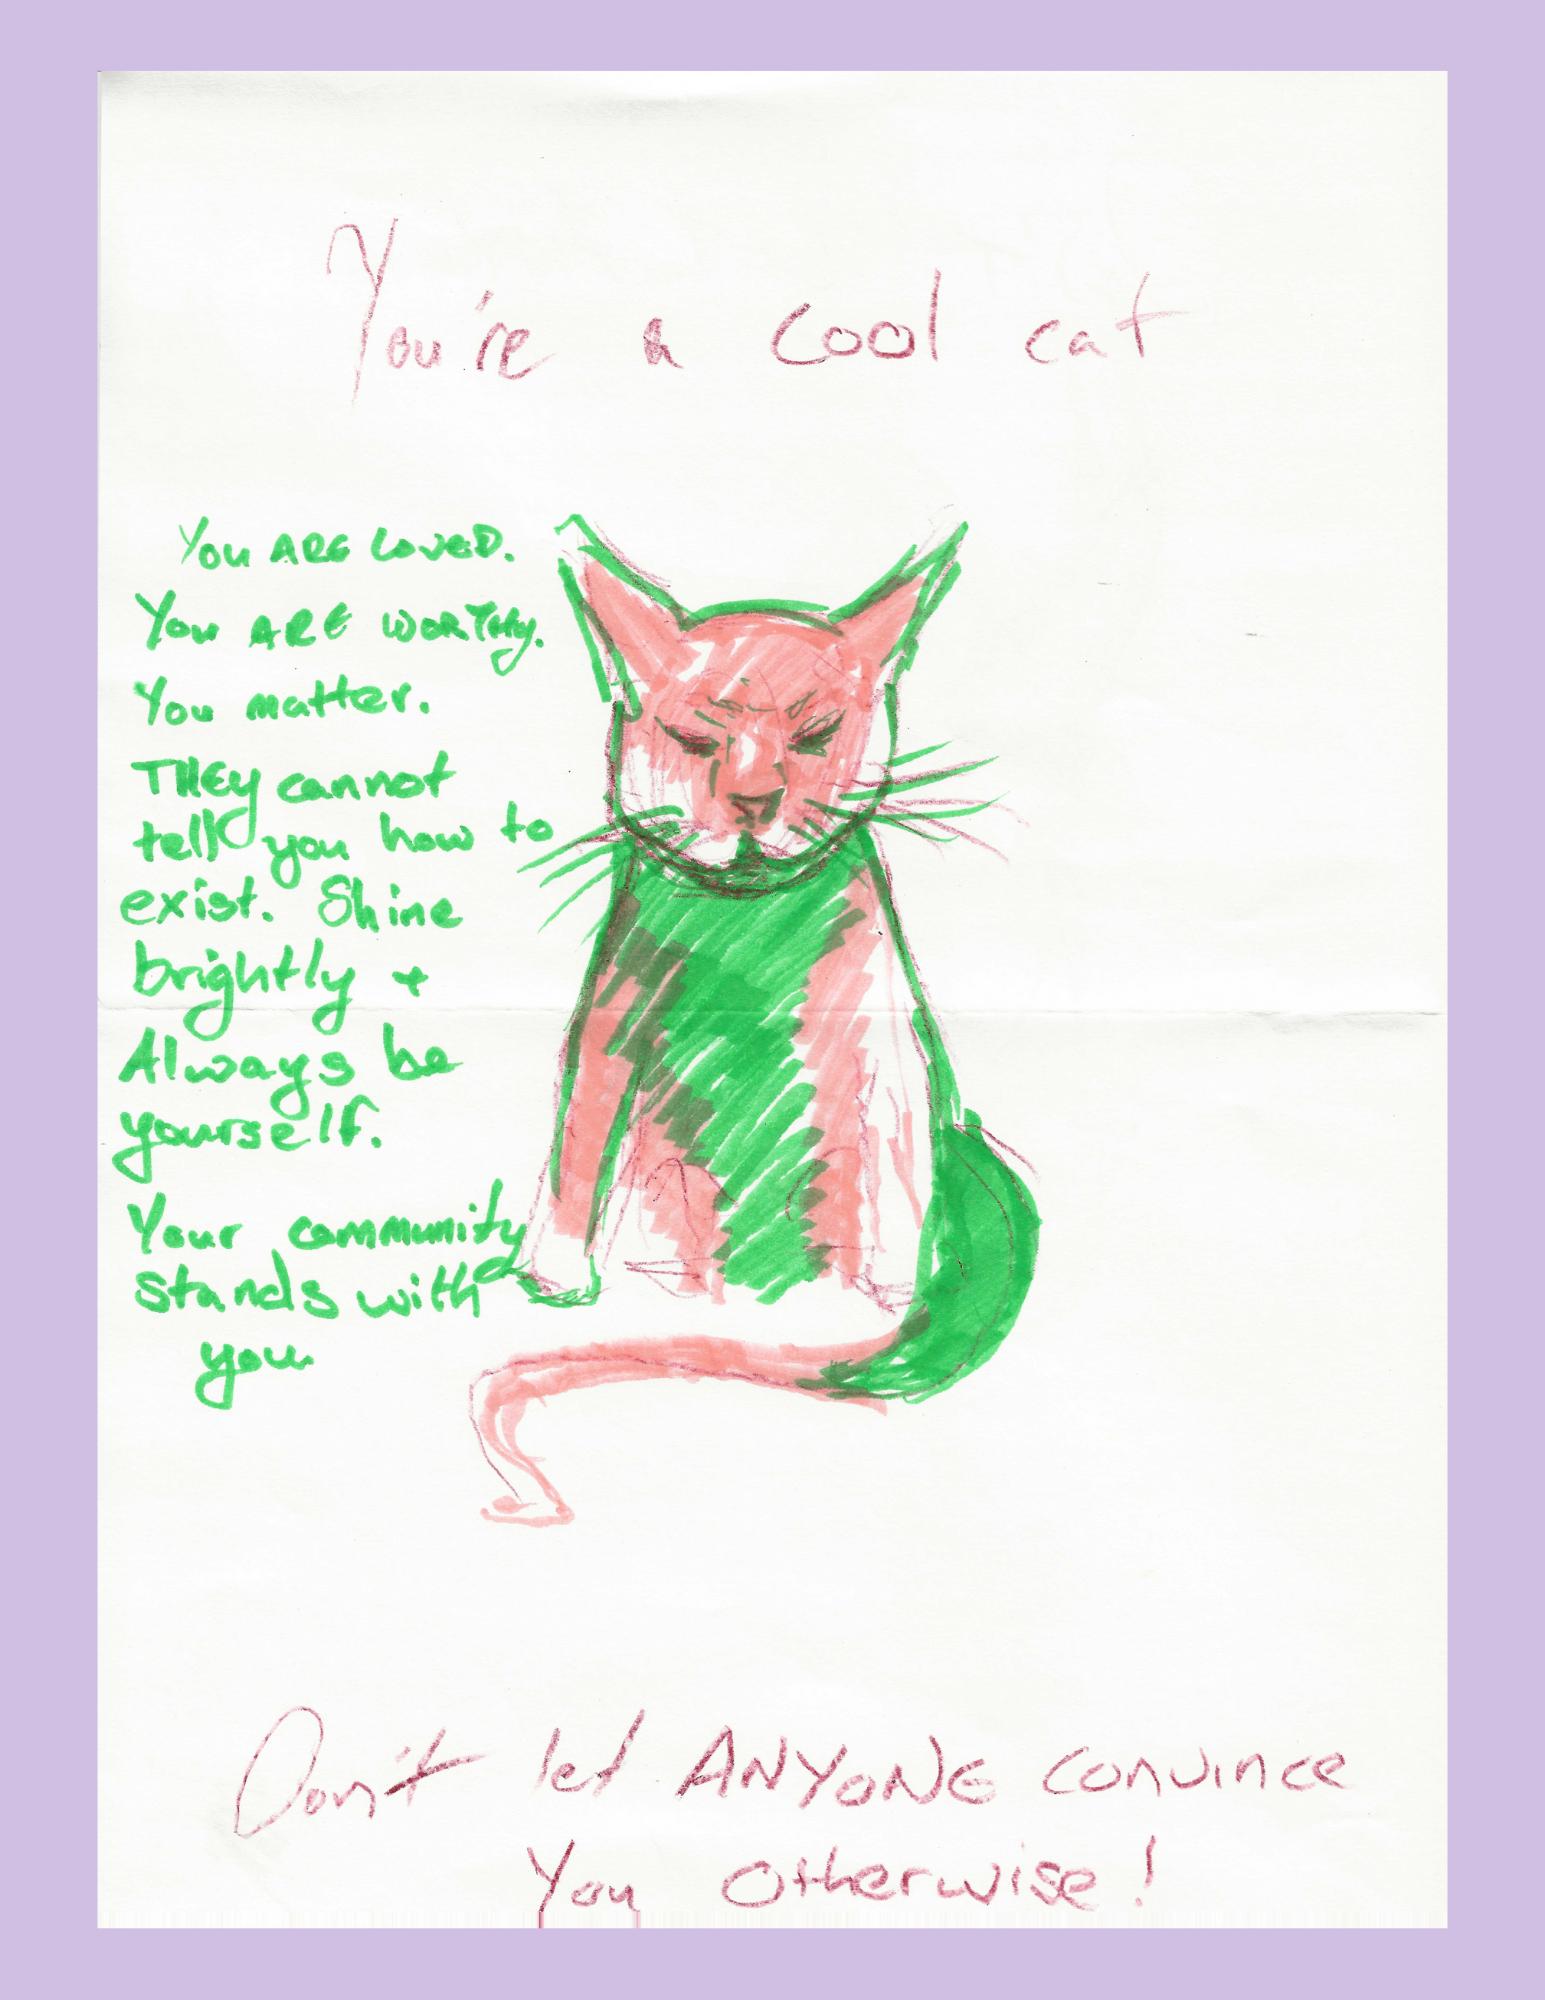 You're a cool cat
You ARE LOVED.
You ARE WORTHY.
You matter.
THEY cannot
tell you how to
exist. Shine
brightly +
Always be
yourself.
Your community
stands with
you
Don't let ANYONE convince
You otherwise!